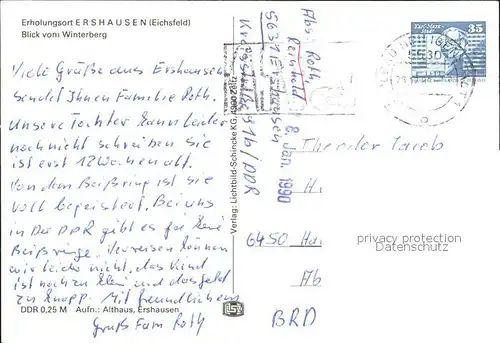 Erholungsort ERSHAUSEN (Eichsfeld)
Blick vom Winterberg
Viele Grüße aus Ershausen
sendet Ihnen Familie Roth.
Unsere Tochter kann leider
noch nicht schreiben sie
ist erst 12 Wochen alt.
Von dem Beißring ist sie
voll begeistert. Bei uns
in der DDR gibt es gar keine
Beißringe. Verreisen können
wir leider nicht, das Kind
ist noch zu klein und das Geld
zu knapp. Mit freundlichem
Gruß Fam Roth
DDR 0,25 M Aufn.: Althaus, Ershausen
Verlag: Lichtbild-Schincke KG, 4900 Zeitz
Abs: Roth,
Reinhold
5631 Ershausen
DDR
8. Jan. 1990
35
Theodor Jacob
H
6450 Ha
Ab
BRD
privacy protection
Datenschutz